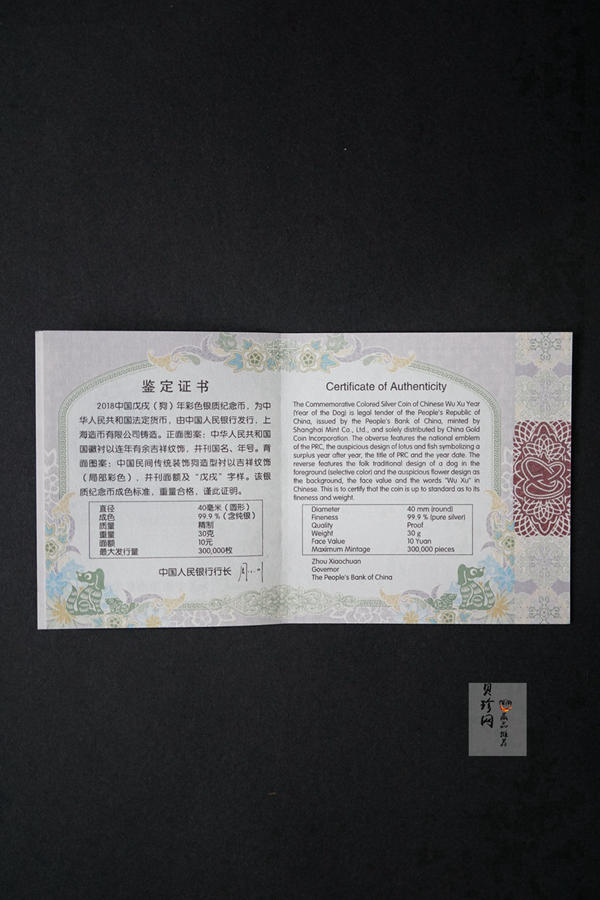 鉴定证书
2018中国戊戌（狗）年彩色银质纪念币，为中
华人民共和国法定货币，由中国人民银行发行，上
海造币有限公司铸造。正面图案：中华人民共和国
国徽衬以连年有余吉祥纹饰，并刊国名、年号。背
面图案：中国民间传统装饰狗造型衬以吉祥纹饰
（局部彩色），并刊面额及“戊戌”字样。该银
质纪念币成色标准，重量合格，谨此证明。
直径 40毫米（圆形）
成色 99.9％（含纯银）
质量 精制
重量 30克
面额 10元
最大发行量 300,000枚
中国人民银行行长
Certificate of Authenticity
The Commemorative Colored Silver Coin of Chinese Wu Xu Year
(Year of the Dog) is legal tender of the People's Republic of
China, issued by the People's Bank of China, minted by
Shanghai Mint Co., Ltd., and solely distributed by China Gold
Coin Incorporation. The obverse features the national emblem
of the PRC, the auspicious design of lotus and fish symbolizing a
surplus year after year, the title of PRC and the year date. The
reverse features the folk traditional design of a dog in the
foreground (selective color) and the auspicious flower design as
the background, the face value and the words "Wu Xu" in
Chinese. This is to certify that the coin is up to standard as to its
fineness and weight.
Diameter 40 mm (round)
Fineness 99.9 % (pure silver)
Quality Proof
Weight 30 g
Face Value 10 Yuan
Maximum Mintage 300,000 pieces
Zhou Xiaochuan
Governor
The People's Bank of China
贝珍网
藏品推荐